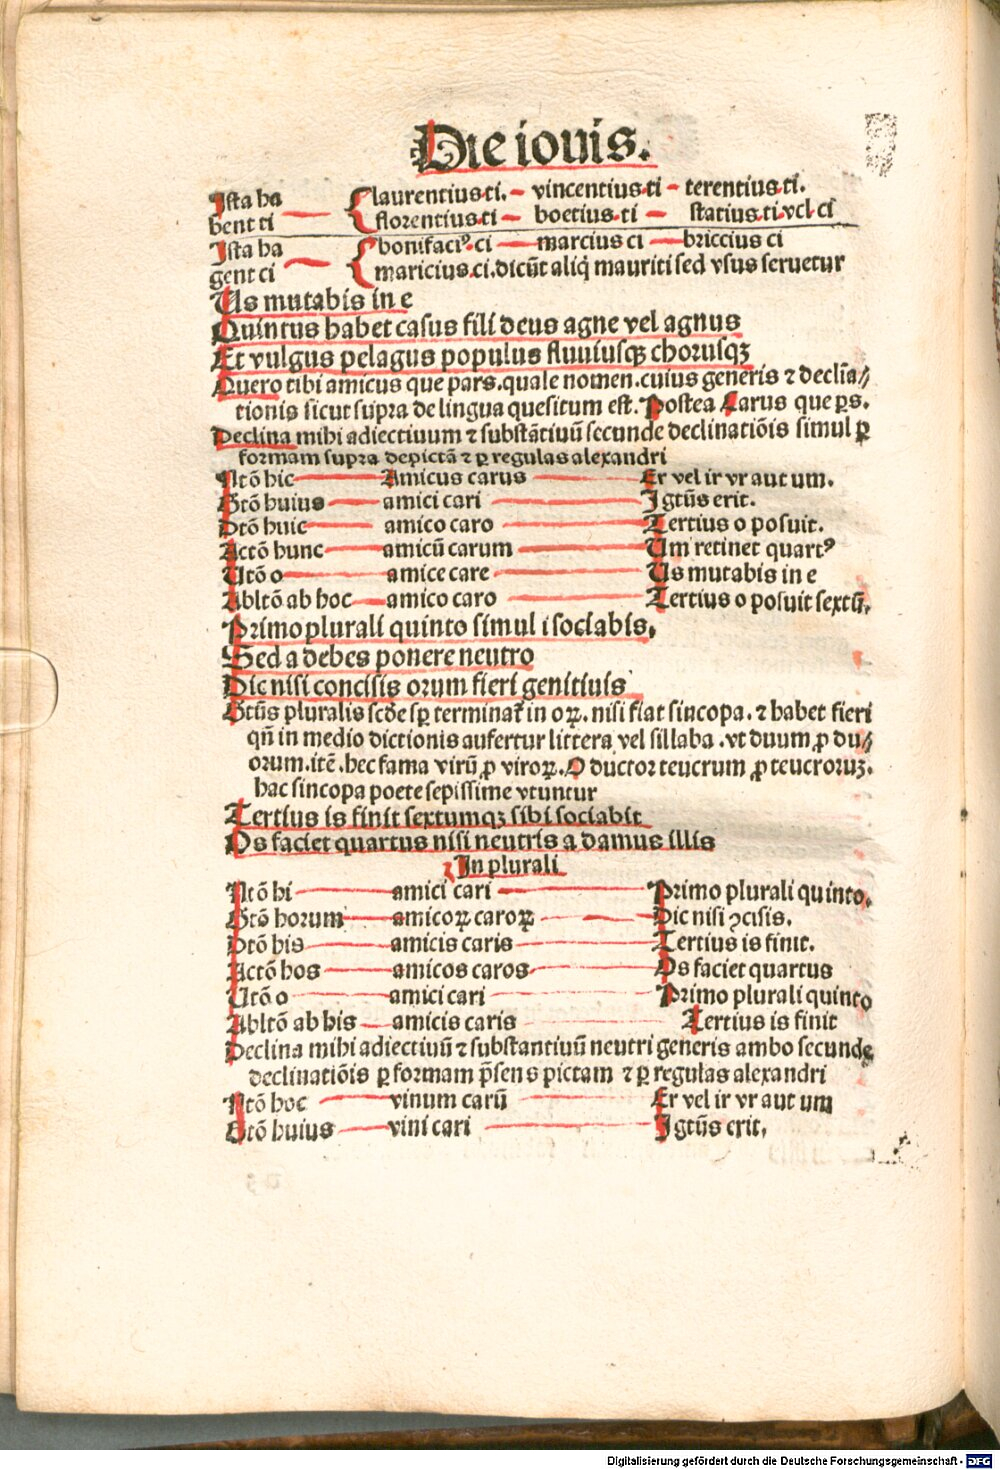 Die iouis.
Ista ha { laurentius.ti. – vincentius.ti – terentius.ti.
bent ti florentius.ti – boetius.ti – statius.ti.vel ci
Ista ha { bonifaciꝰ.ci – marcius ci – briccius ci
gent ci maricius.ci.dicūt aliq̄ mauriti sed vsus seruetur
Us mutabis in e
Quintus habet casus fili deus agne vel agnus
Et vulgus pelagus populus fluuiusqꝫ chorusqꝫ
Quero tibi amicus que pars.quale nomen.cuius generis ⁊ decliа̄⸗
tionis sicut supra de lingua quesitum est. Postea Carus que ps.
Declina mihi adiectiuum ⁊ substātiuū secunde declinatiōis simul ꝑ
formam supra depictā ⁊ ꝑ regulas alexandri
Ntō hic — Amicus carus — Er vel ir vr aut um.
Gtō huius — amici cari — I gtūs erit.
Dtō huic — amico caro — Tertius o posuit.
Actō hunc — amicū carum — Um retinet quartꝰ
Utō o — amice care — Us mutabis in e
Abltō ab hoc — amico caro — Tertius o posuit sextū.
Primo plurali quinto simul i sociabis.
Sed a debes ponere neutro
Dic nisi concisis orum fieri genitiuis
Gtūs pluralis scd̄e sp̄ terminat̄ in oꝝ. nisi fiat sincopa. ⁊ habet fieri
qn̄ in medio dictionis aufertur littera vel sillaba .vt duum ꝓ du⸗
orum.itē.hec fama virū ꝓ viroꝝ. O ductor teucrum ꝓ teucroruꝫ.
hac sincopa poete sepissime vtuntur
Tertius is finit sextumqꝫ sibi sociabit
Os faciet quartus nisi neutris a damus illis
In plurali
Ntō hi — amici cari — Primo plurali quinto.
Gtō horum — amicoꝝ caroꝝ — Dic nisi ꝯcisis.
Dtō his — amicis caris — Tertius is finit.
Actō hos — amicos caros — Os faciet quartus
Utō o — amici cari — Primo plurali quinto
Abltō ab his — amicis caris — Tertius is finit
Declina mihi adiectiuū ⁊ substantiuū neutri generis ambo secunde
declinatiōis ꝑ formam p̄sens pictam ⁊ ꝑ regulas alexandri
Ntō hoc — vinum carū — Er vel ir vr aut um
Gtō huius — vini cari — I gtūs erit.
Digitalisierung gefördert durch die Deutsche Forschungsgemeinschaft - DFG